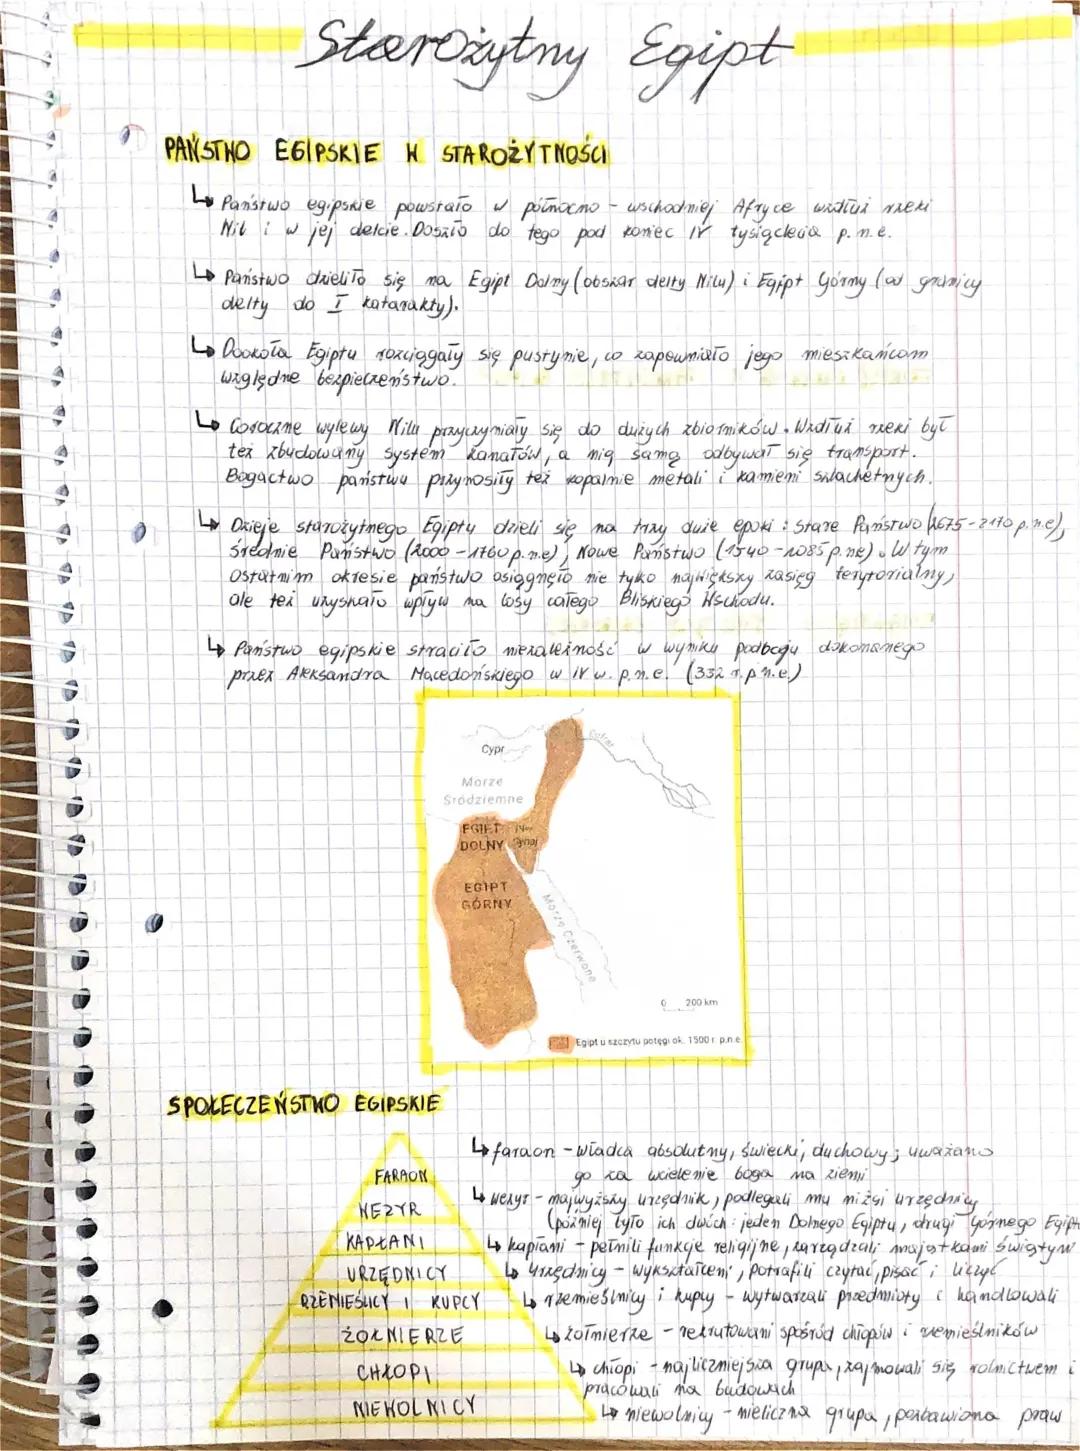 Starożytny Egipt
PAŃSTWO EGIPSKIE W STAROŻYTNOŚCI
↳ Państwo egipskie powstało w północno - wschodniej Afryce wzdłuż rzeki
Nil i w jej delcie. Doszło do tego pod koniec IV tysiąclecia p.n.e.
↳ Państwo dzieliło się na Egipt Dolny (obszar delty Nilu) i Egipt Górny (od granicy
delty do I katarakty).
↳ Dookoła Egiptu rozciągały się pustynie, co zapewniało jego mieszkańcom
względne bezpieczeństwo.
↳ Coroczne wylewy Nilu przyczyniały się do dużych zbiorników. Wzdłuż rzeki był
też zbudowany system kanałów, a nią samą odbywał się transport.
Bogactwo państwu przynosiły też kopalnie metali i kamieni szlachetnych.
↳ Dzieje starożytnego Egiptu dzieli się na trzy duże epoki: Stare Państwo (2675-2170 p.n.e),
Średnie Państwo (2000-1760 p.n.e), Nowe Państwo (1540-1085 p.ne). W tym
ostatnim okresie państwo osiągnęło nie tylko największy zasięg terytorialny,
ale też uzyskało wpływ na losy całego Bliskiego Wschodu.
↳ Państwo egipskie straciło niezależność w wyniku podboju dokonanego
przez Aleksandra Macedońskiego w IV w. p.n.e. (332 r.p.n.e.)
Cypr
Eufrat
Morze
Śródziemne
EGIPT
DOLNY
Płw.
Synaj
EGIPT
GÓRNY
Morze Czerwone
0 200 km
Egipt u szczytu potęgi ok. 1500 r. p.n.e.
SPOŁECZEŃSTWO EGIPSKIE
FARAON
WEZYR
KAPŁANI
URZĘDNICY
RZEMIEŚLICY I KUPCY
ŻOŁNIERZE
CHŁOPI
NIEWOLNICY
↳ faraon - władca absolutny, świecki, duchowy; uważano
go za wcielenie boga na ziemi
↳ wezyr - najwyższy urzędnik, podlegali mu niżsi urzędnicy
(później było ich dwóch: jeden Dolnego Egiptu, drugi Górnego Egiptu
↳ kapłani - pełnili funkcje religijne, zarządzali majątkami świątyń
↳ urzędnicy - wykształceni, potrafili czytać, pisać i liczyć
↳ rzemieślnicy i kupcy - wytwarzali przedmioty i handlowali
↳ żołnierze - rekrutowani spośród chłopów i rzemieślników
↳ chłopi - najliczniejsza grupa, zajmowali się rolnictwem i
pracowali na budowach
↳ niewolnicy - nieliczna grupa, pozbawiona praw